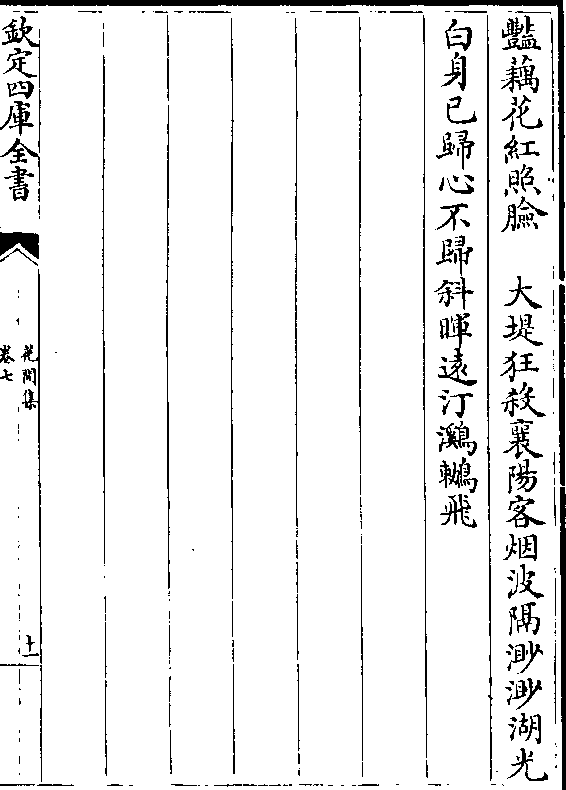 豔藕花紅照臉　大堤狂殺襄陽客烟波隔渺渺湖光
白身已歸心不歸斜暉遠汀鸂鶒飛
欽定四庫全書
花間集
卷七
十一